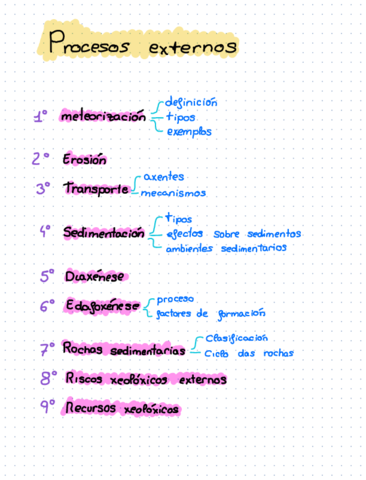 Procesos externos
definición
1° meteorización tipos
exemplos
2° Erosión
axentes
3° Transporte
mecanismos
tipos
4° Sedimentación efectos sobre sedimentos
ambientes sedimentarios
5° Diaxénese
proceso
6° Edafoxénese
factores de formación
Clasificación
7° Rochas sedimentarias
Ciclo das rochas
8° Riscos xeolóxicos externos
9° Recursos xeolóxicos